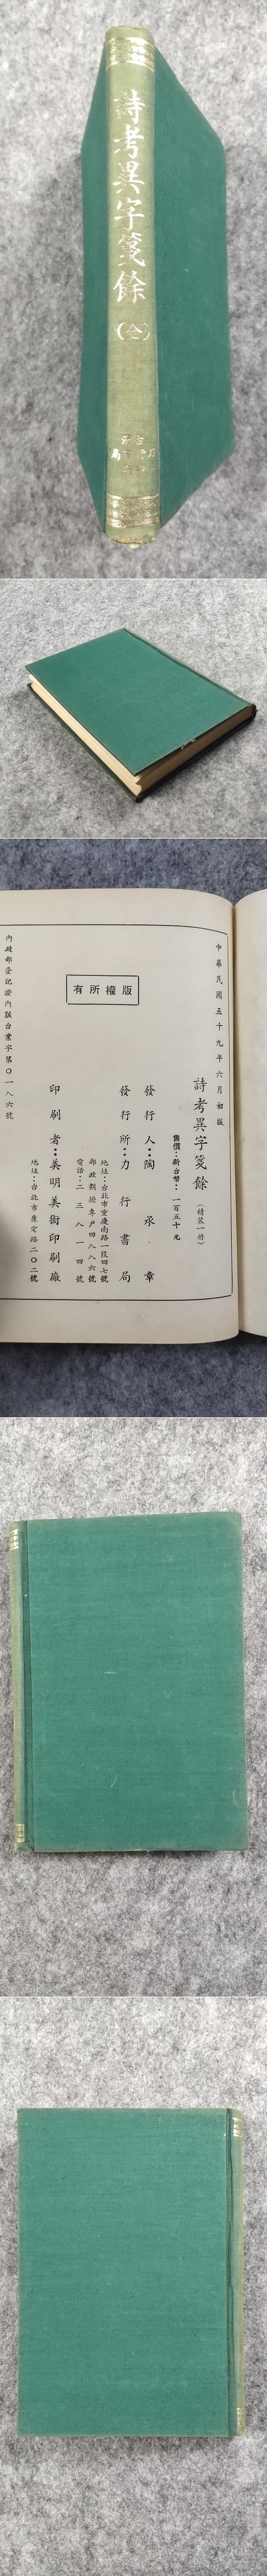 詩考異字箋餘
（全）
力行書局
中華民國五十九年六月初版
詩考異字箋餘（精裝一冊）
售價：新台幣：一百五十元
發行人：陶承章
發行所：力行書局
地址：台北市重慶南路一段四七號
郵政劃撥專戶四八八六號
電話：二三八一四號
印刷者：美明美術印刷廠
地址：台北市康定路二〇二號
版權所有
內政部登記證內版台業字第〇一八六號